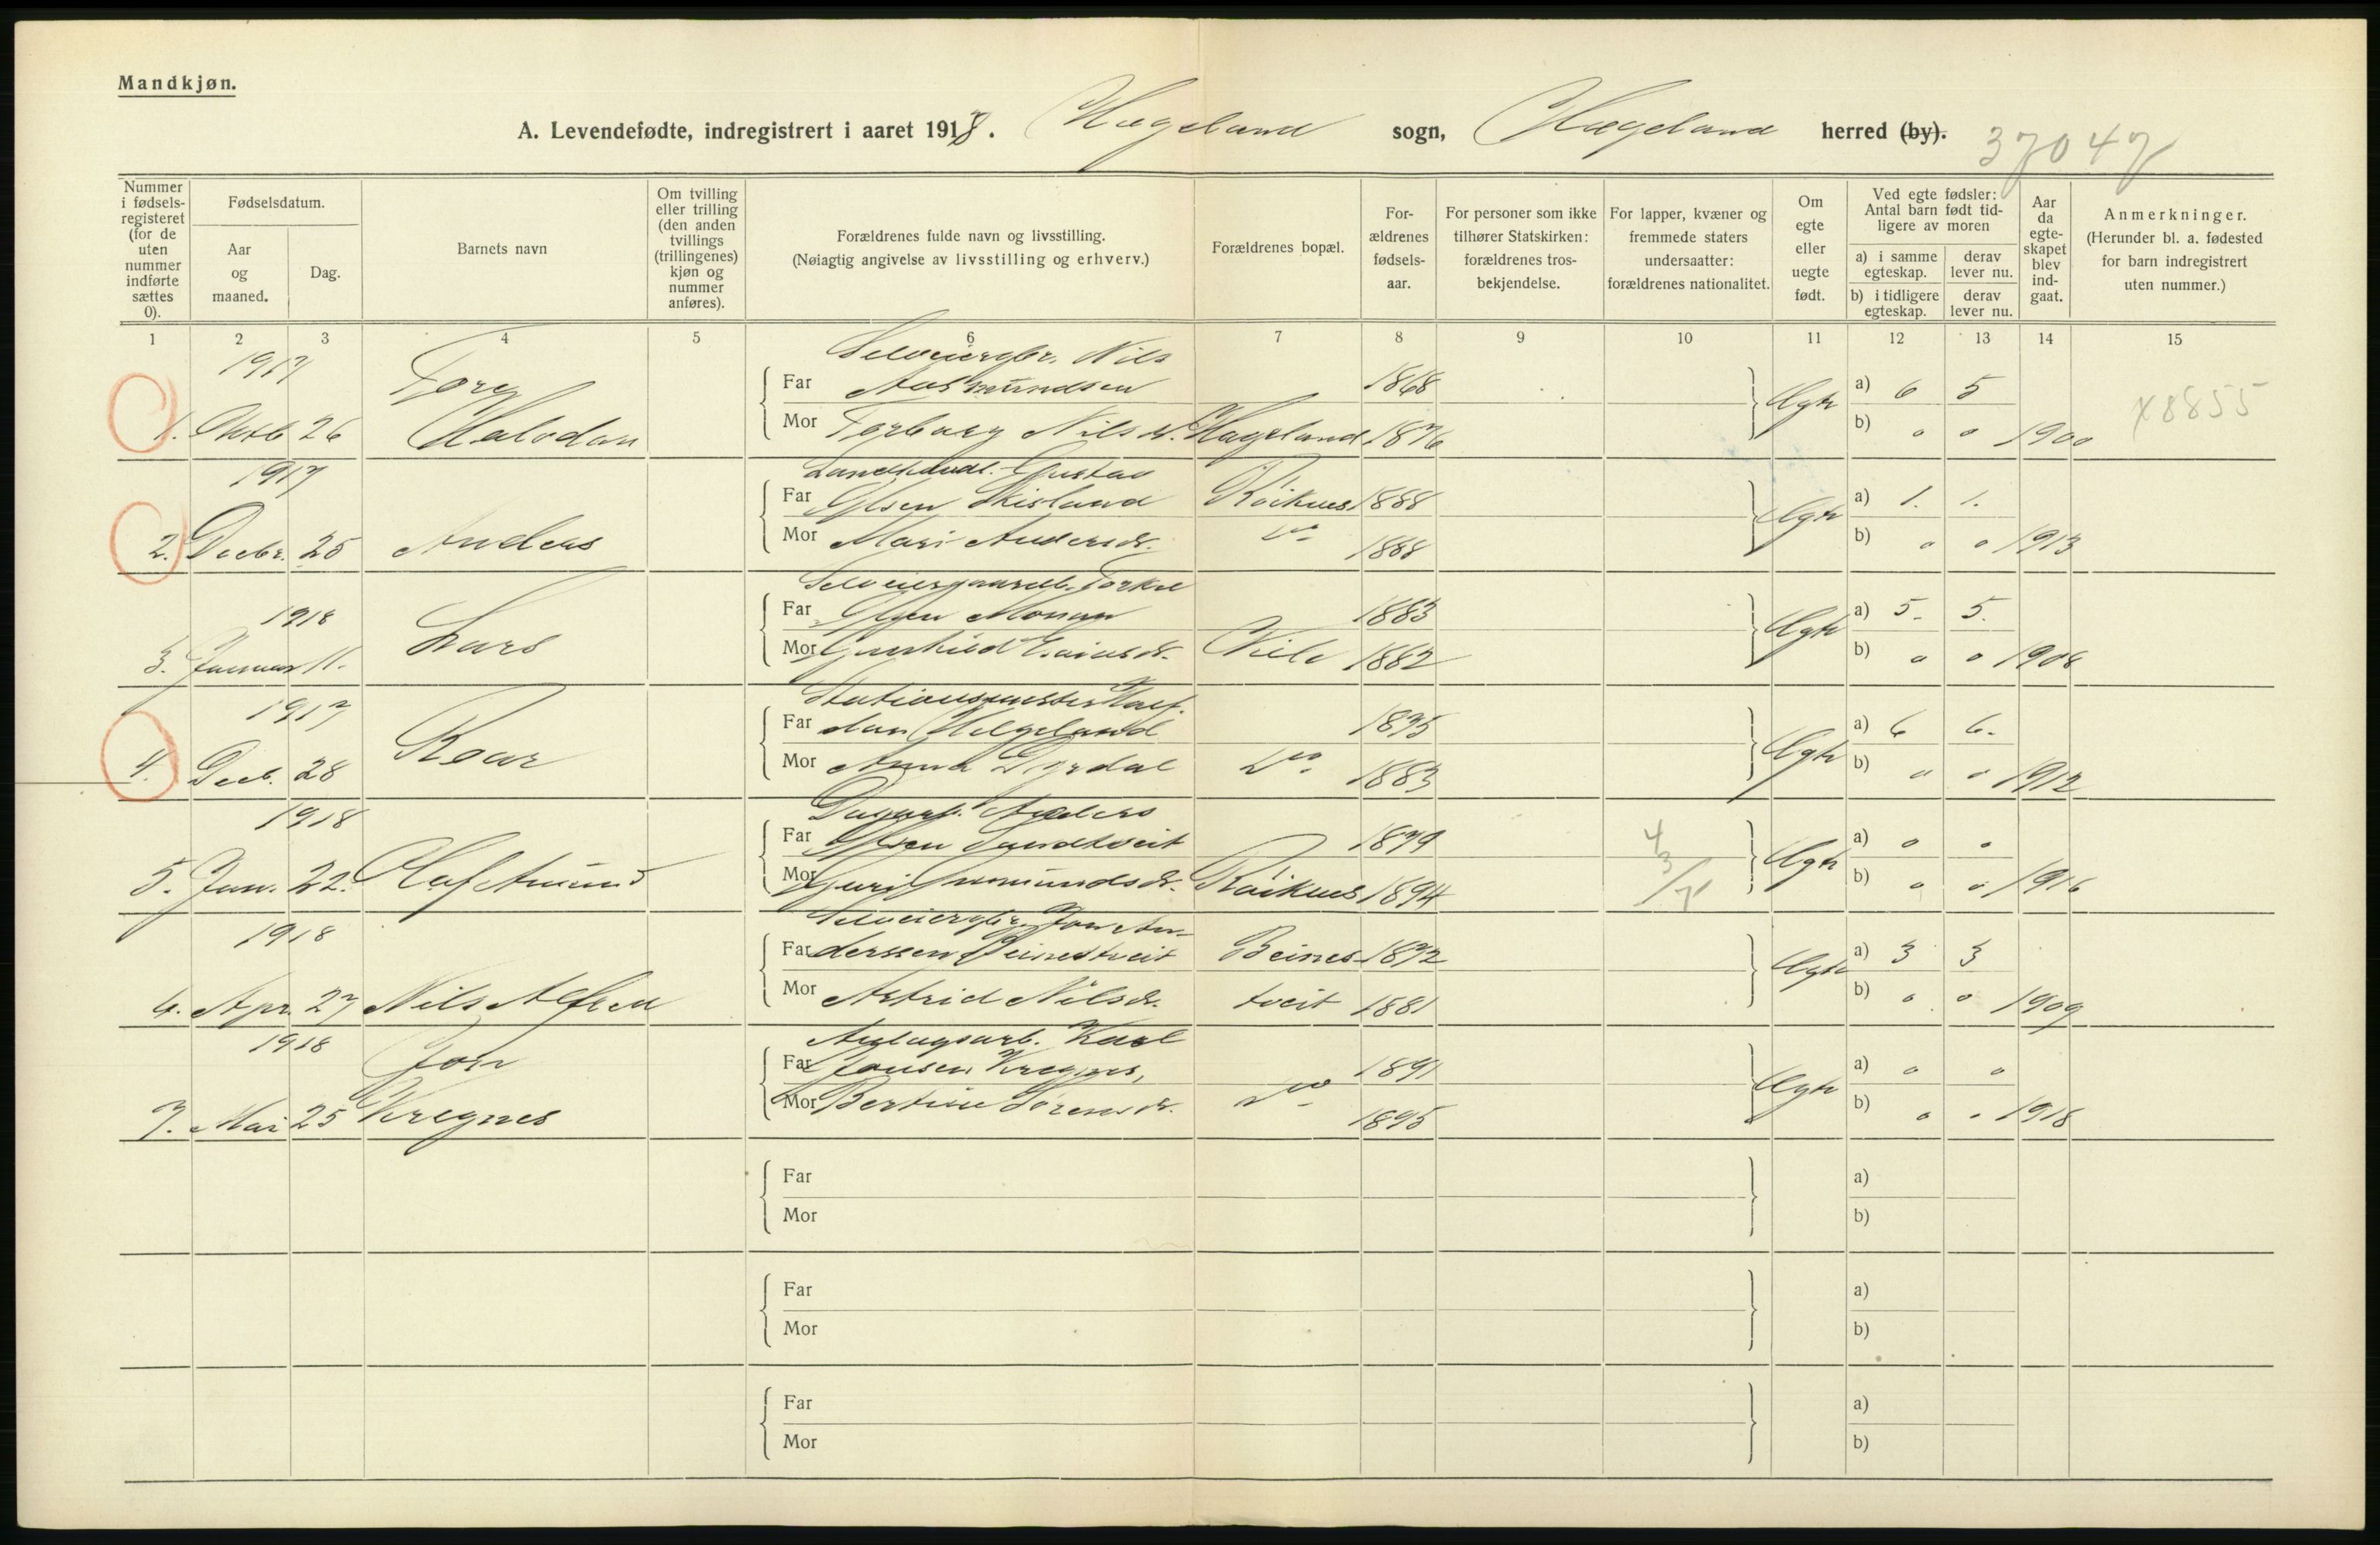 Mandkjøn.
A. Levendefødte, indregistrert i aaret 1918. Hægeland sogn, Hægeland herred (by). 37047
Nummer i fødsels-registeret (for de uten nummer indførte sættes 0).
Fødselsdatum.
Aar og maaned.
Dag.
Barnets navn
Om tvilling eller trilling (den anden tvillings (trillingenes) kjøn og nummer anføres).
Forældrenes fulde navn og livsstilling.
(Nøiagtig angivelse av livsstilling og erhverv.)
Forældrenes bopæl.
For-ældrenes fødsels-aar.
For personer som ikke tilhører Statskirken: forældrenes tros-bekjendelse.
For lapper, kvæner og fremmede staters undersaatter: forældrenes nationalitet.
Om egte eller uegte født.
Ved egte fødsler: Antal barn født tid-ligere av moren
a) i samme egteskap.
derav lever nu.
b) i tidligere egteskap.
derav lever nu.
Aar da egte-skapet blev ind-gaat.
Anmerkninger.
(Herunder bl. a. fødested for barn indregistrert uten nummer.)
1 2 3 4 5 6 7 8 9 10 11 12 13 14 15
1917 Selveiergbr. Nils
Far Aasmundsen 1868 a) 6 5
1. Oktb 26 Halvdan Mor Torborg Nilsd. Hægeland 1876 Egte b) o o 1900 x8855
1917 Landhandl. Gustav
Far Olsen Skisland Røiknes 1888 a) 1. 1.
2. Decbr. 25 Anders Mor Mari Andersd. do 1888 Egte b) o o 1913
1918 Selveiergaardb. Torkel
Far Olsen Monan 1883 a) 5. 5.
3. Januar 11. Lars Mor Gunhild Einarsd. 1882 Egte b) o o 1908
1917 Stationsmester Half-
Far dan Helgeland 1875 a) 6 6.
4. Decb. 28 Roar Mor Anna do 1883 Egte b) o o 1912
1918 Anders
Far Olsen Sandtveit 1879 a) o o
5. Jan. 22. Olaf Amund Mor Guri Gumundsd. Røiknes 1894 4 3/7 Egte b) o o 1916
1918 Selveiergbr. Jon An-
Far derssen Beinestveit Beines- 1872 a) 3 3
6. Apr. 27 Nils Alfred Mor Astrid Nilsd. tveit 1881 Egte b) o o 1909
1918 Jon Anlægsarb. Karl
Far Jonsen Kregnes, 1891 a) o o
7. Mai 25 Kregnes Mor Bertine Sørensd. do 1895 Egte b) o o 1918
Far a)
Mor b)
Far a)
Mor b)
Far a)
Mor b)